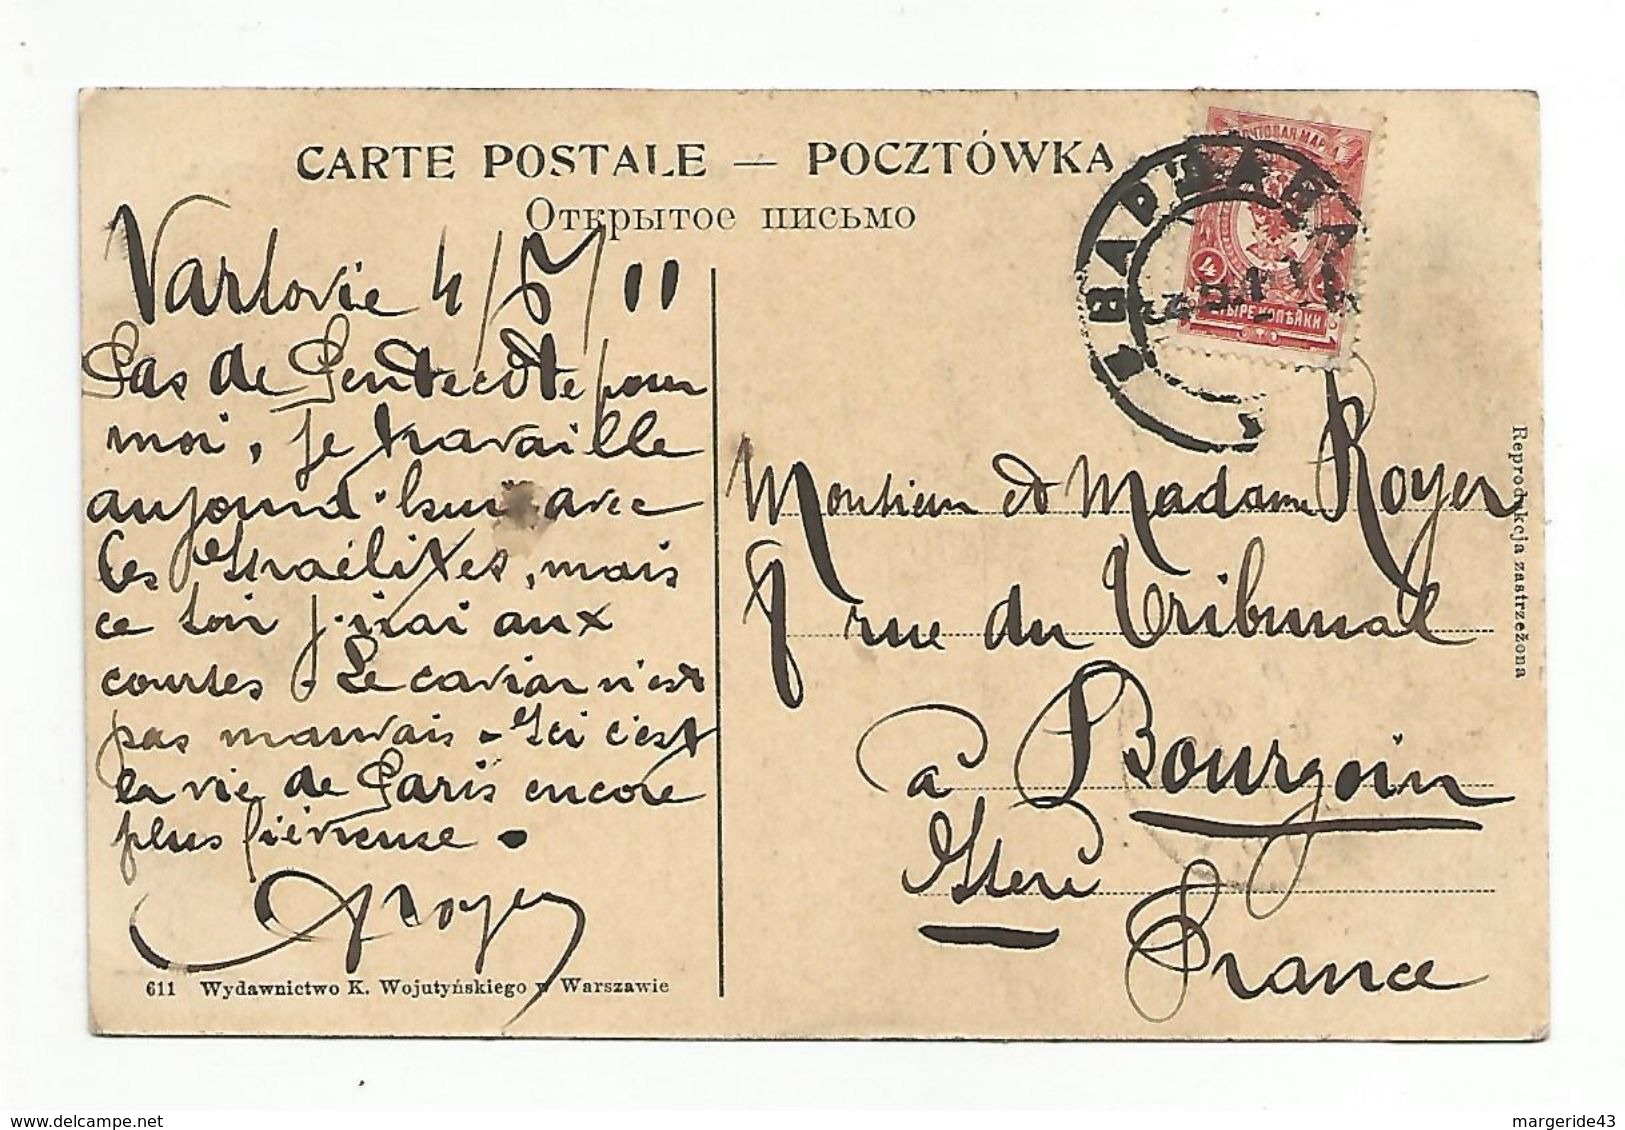 CARTE POSTALE — POCZTÓWKA
Открытое письмо
Varsovie 4/5/11
Pas de Pentecôte pour
moi, je travaille
aujourd'hui avec
les Israélites, mais
ce soir j'irai aux
courses. Le caviar n'est
pas mauvais. Ici c'est
la vie de Paris encore
plus fiévreuse.
Royer
611 Wydawnictwo K. Wojutyńskiego w Warszawie
ПОЧТОВАЯ МАРКА
4
ЧЕТЫРЕ КОПѢЙКИ
ВАРШАВА
Monsieur et Madame Royer
9 rue du Tribunal
à Bourgoin
Isère
France
Reprodukcja zastrzeżona
margeride43